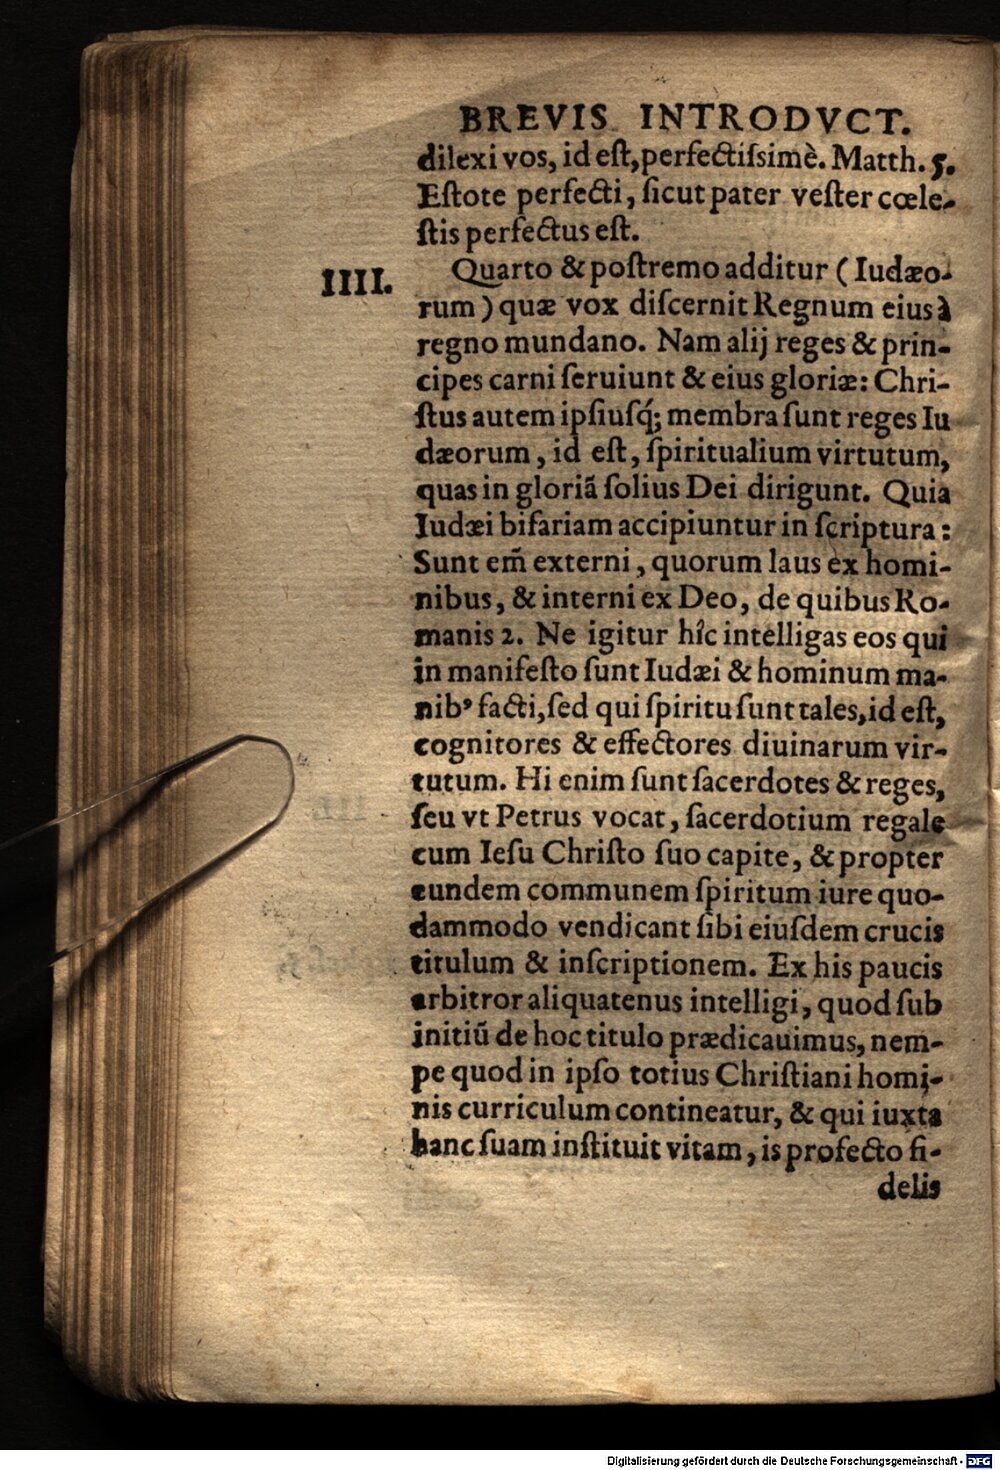 BREVIS INTRODVCT.
dilexi vos, id eſt, perfectiſsimè. Matth. 5.
Eſtote perfecti, ſicut pater veſter cœle-
ſtis perfectus eſt.
IIII. Quarto & poſtremo additur (Iudæo-
rum) quæ vox diſcernit Regnum eius à
regno mundano. Nam alij reges & prin-
cipes carni ſeruiunt & eius gloriæ: Chri-
ſtus autem ipſiuſq́; membra ſunt reges Iu
dæorum, id eſt, ſpiritualium virtutum,
quas in gloriã ſolius Dei dirigunt. Quia
Iudæi bifariam accipiuntur in ſcriptura:
Sunt em̃ externi, quorum laus ex homi-
nibus, & interni ex Deo, de quibus Ro-
manis 2. Ne igitur hîc intelligas eos qui
in manifeſto ſunt Iudæi & hominum ma-
nibꝰ facti, ſed qui ſpiritu ſunt tales, id eſt,
cognitores & effectores diuinarum vir-
tutum. Hi enim ſunt ſacerdotes & reges,
ſeu vt Petrus vocat, ſacerdotium regale
cum Ieſu Chriſto ſuo capite, & propter
eundem communem ſpiritum iure quo-
dammodo vendicant ſibi eiuſdem crucis
titulum & inſcriptionem. Ex his paucis
arbitror aliquatenus intelligi, quod ſub
initiũ de hoc titulo prædicauimus, nem-
pe quod in ipſo totius Chriſtiani homi-
nis curriculum contineatur, & qui iuxta
hanc ſuam inſtituit vitam, is profecto fi-
delis
Digitalisierung gefördert durch die Deutsche Forschungsgemeinschaft - DFG